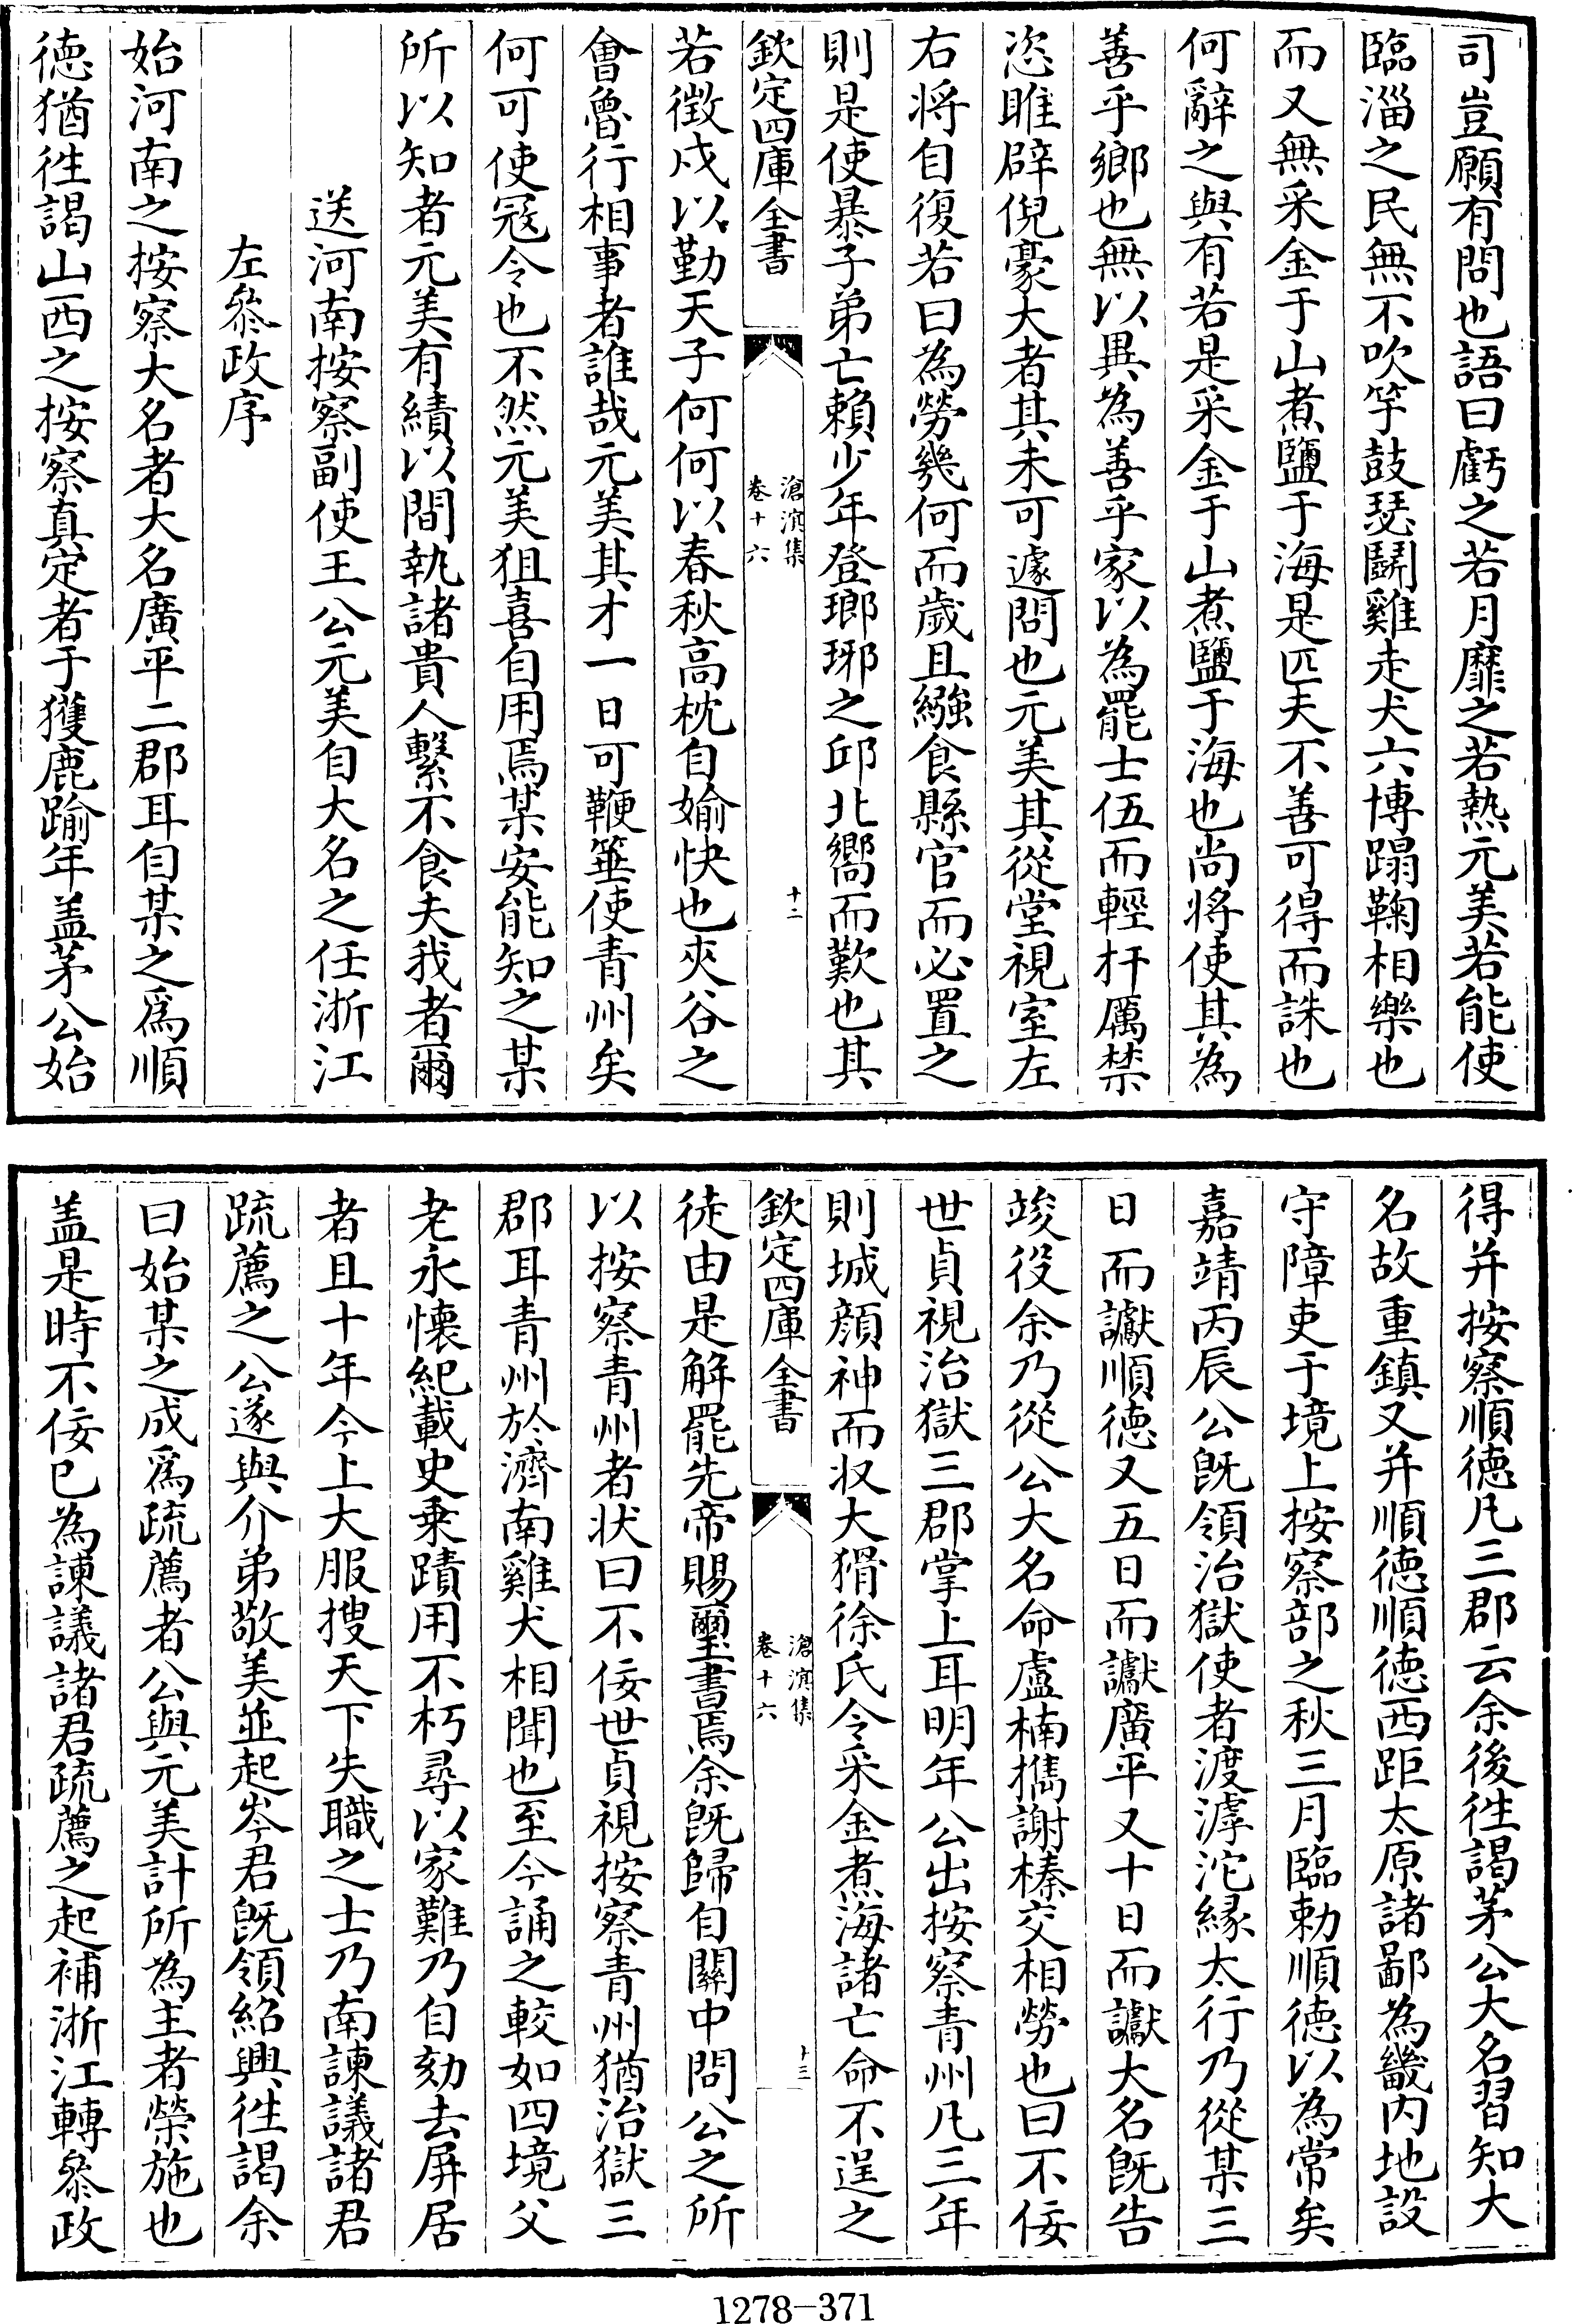 司豈願有問也語曰虧之若月靡之若熱元美若能使
臨淄之民無不吹竽鼓瑟鬬雞走犬六博蹋鞠相樂也
而又無采金于山煮鹽于海是匹夫不善可得而誅也
何辭之與有若是采金于山煮鹽于海也尚將使其為
善乎鄉也無以異為善乎家以為罷士伍而輕扞厲禁
恣睢辟倪豪大者其未可遽問也元美其從堂視室左
右將自復若曰為勞幾何而歲且繦食縣官而必置之
則是使暴子弟亡賴少年登瑯琊之邱北嚮而歎也其
欽定四庫全書
滄溟集
卷十六
十二
若徵戍以勤天子何何以春秋高枕自媮快也夾谷之
會魯行相事者誰哉元美其才一日可鞭箠使青州矣
何可使冦令也不然元美狙喜自用焉某安能知之某
所以知者元美有績以間執諸貴人繫不食夫我者爾
送河南按察副使王公元美自大名之任浙江
左叅政序
始河南之按察大名者大名廣平二郡耳自某之爲順
德猶徃謁山西之按察真定者于獲鹿踰年盖茅公始
得并按察順徳凡三郡云余後徃謁茅公大名習知大
名故重鎮又并順徳順徳西距太原諸鄙為畿内地設
守障吏于境上按察部之秋三月臨勅順徳以為常矣
嘉靖丙辰公旣領治獄使者渡滹沱縁太行乃從某三
日而讞順徳又五日而讞廣平又十日而讞大名旣告
竣役余乃從公大名命盧楠擕謝榛交相勞也曰不佞
世貞視治獄三郡掌上耳明年公出按察青州凡三年
則城顔神而収大猾徐氏令采金煮海諸亡命不逞之
欽定四庫全書
滄溟集
卷十六
十三
徒由是解罷先帝賜璽書焉余旣歸自關中問公之所
以按察青州者状曰不佞世貞視按察青州猶治獄三
郡耳青州於濟南雞犬相聞也至今誦之較如四境父
老永懐紀載史乗蹟用不朽尋以家難乃自劾去屏居
者且十年今上大服搜天下失職之士乃南諫議諸君
疏薦之公遂與介弟敬美並起岑君旣領紹興徃謁余
曰始某之成爲疏薦者公與元美計所為主者榮施也
盖是時不佞已為諫議諸君疏薦之起補浙江轉叅政
1278—371